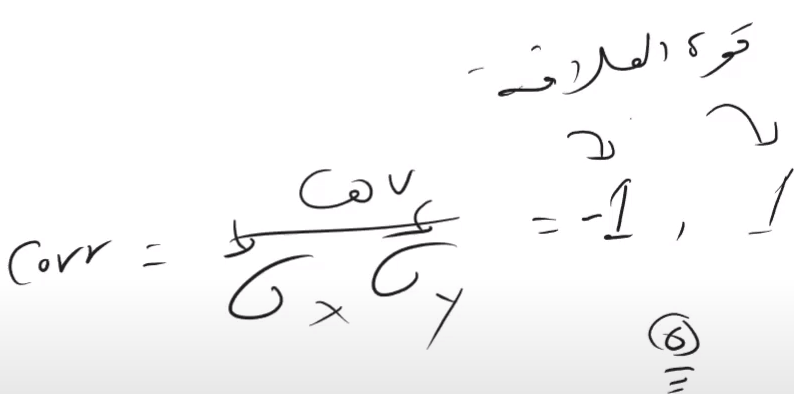 قوة العلاقة
Corr = Cov / σx σy = -1 , 1